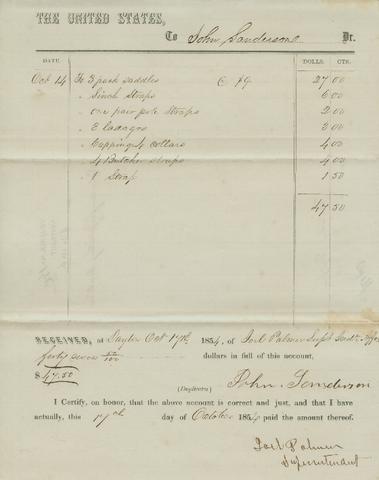 THE UNITED STATES,
To John Sanderson Dr.
DATE. DOLLS. CTS.
Oct 14 To 3 pack saddles @ $9 27 00
" Sinch straps 6 00
" one pair pole straps 2 00
" 2 ladagos 3 00
" Capping 4 collars 4 00
" 4 Butcher straps 4 00
" 1 Strap 1 50
47.50
RECEIVED, at Dayton Oct 17th 1854, of Joel Palmer Supt Indn Affs
forty seven 50/100 dollars in full of this account,
$47.50
(Duplicate) John Sanderson
I Certify, on honor, that the above account is correct and just, and that I have
actually, this 17th day of October 1854 paid the amount thereof.
Joel Palmer
Superintendent